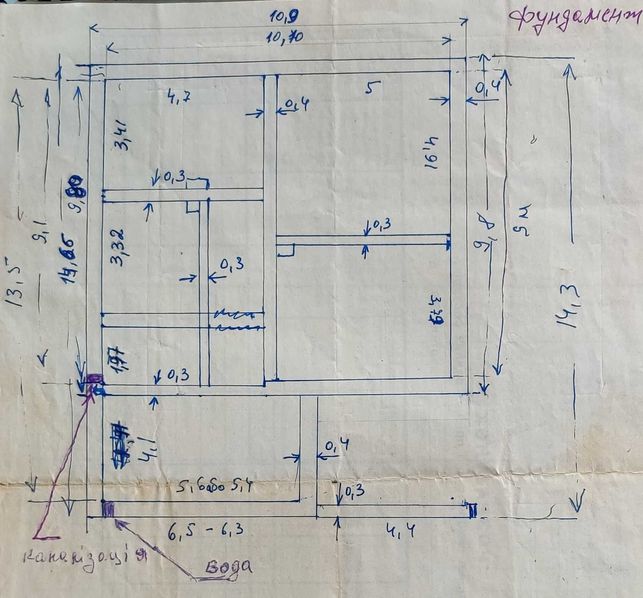 фундамент
10,9
10,70
4,7
0,4
5
0,4
3,41
4,91
0,3
0,3
9,1
13,5
3,32
0,3
9,8
9 м
14,3
3,79
1,97
0,3
4,1
0,4
5,6 або 5,4
0,3
6,5 - 6,3
4,4
каналізація
вода